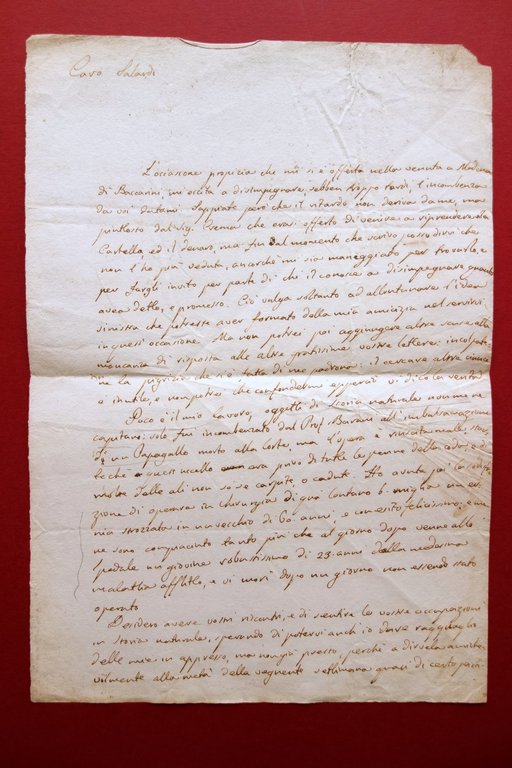 Caro Salardi
L'occasione propizia che mi si è offerta nella venuta a Modena
di Baccarini, mi eccita a disimpegnare, sebben troppo tardi, l'incombenza
da voi datami. Sappiate però che il ritardo non deriva da me, ma
piutosto dal Sig. Crema che erasi offerto di venire a riprendere la
Cartella, ed il denaro, ma fin dal momento che scrivo posso dirvi che
non l'ho più veduto, anorchè mi sia maneggiato per trovarlo, e
per fargli invito per parte di chi il conosce a disimpegnare quanto
avea detto, e promesso. Ciò valga soltanto ad allontanare l'idea
sinistra che potreste aver formato della mia amicizia nel servirvi
in quest'occasione. Ma non potrei poi aggiungere altra scusa alla
mancanza di risposta alle altre gratissime vostre lettere: incolpate
ne la pigrizia che si è fatta di me padrona: il cercare altra
è inutile, e non potrei che confondermi apperchè vi dico la verità
Poco è il mio lavoro, oggetti di storia naturale non me ne
capitano: solo fui incombenzato dal Prof. Barani all'imbalsamazione
di un Papagallo morto alla Corte, ma l'opera è riuscita male, stan-
techè quest'uccello era privo di tutte le penne della coda, e di
molte delle ali non so se carpite, o cadute. Ho avuta poi la soddisfa-
zione di operare in chirurgia di qua lontano 6. miglia un er-
nia strozzata in un vecchio di 60. anni, e con esito felicissimo, e me
ne sono compiaciuto tanto più che al giorno dopo venne allo
Spedale un giovine robustissimo di 23. anni dalla medesima
malattia afflitto, e vi morì dopo un giorno non essendo stato
operato.
Desidero avere vostri riscontri, e di sentire le vostre occupazioni
in storia naturale, sperando di potervi anch'io dare ragguaglio
delle mie in appresso, ma non già presto, perchè a dirvela amiche-
vilmente alla metà della vegnente settimana quasi di certo